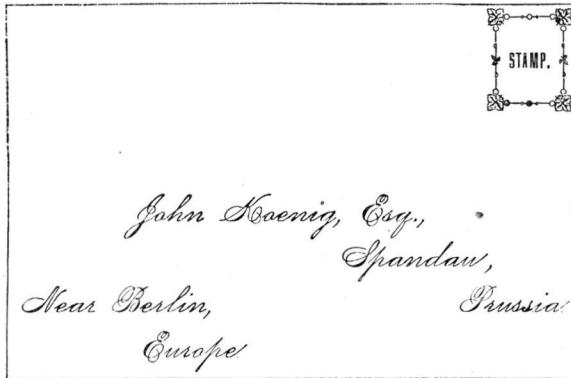 STAMP.
John Koenig, Esq.,
Spandau,
Near Berlin, Prussia
Europe